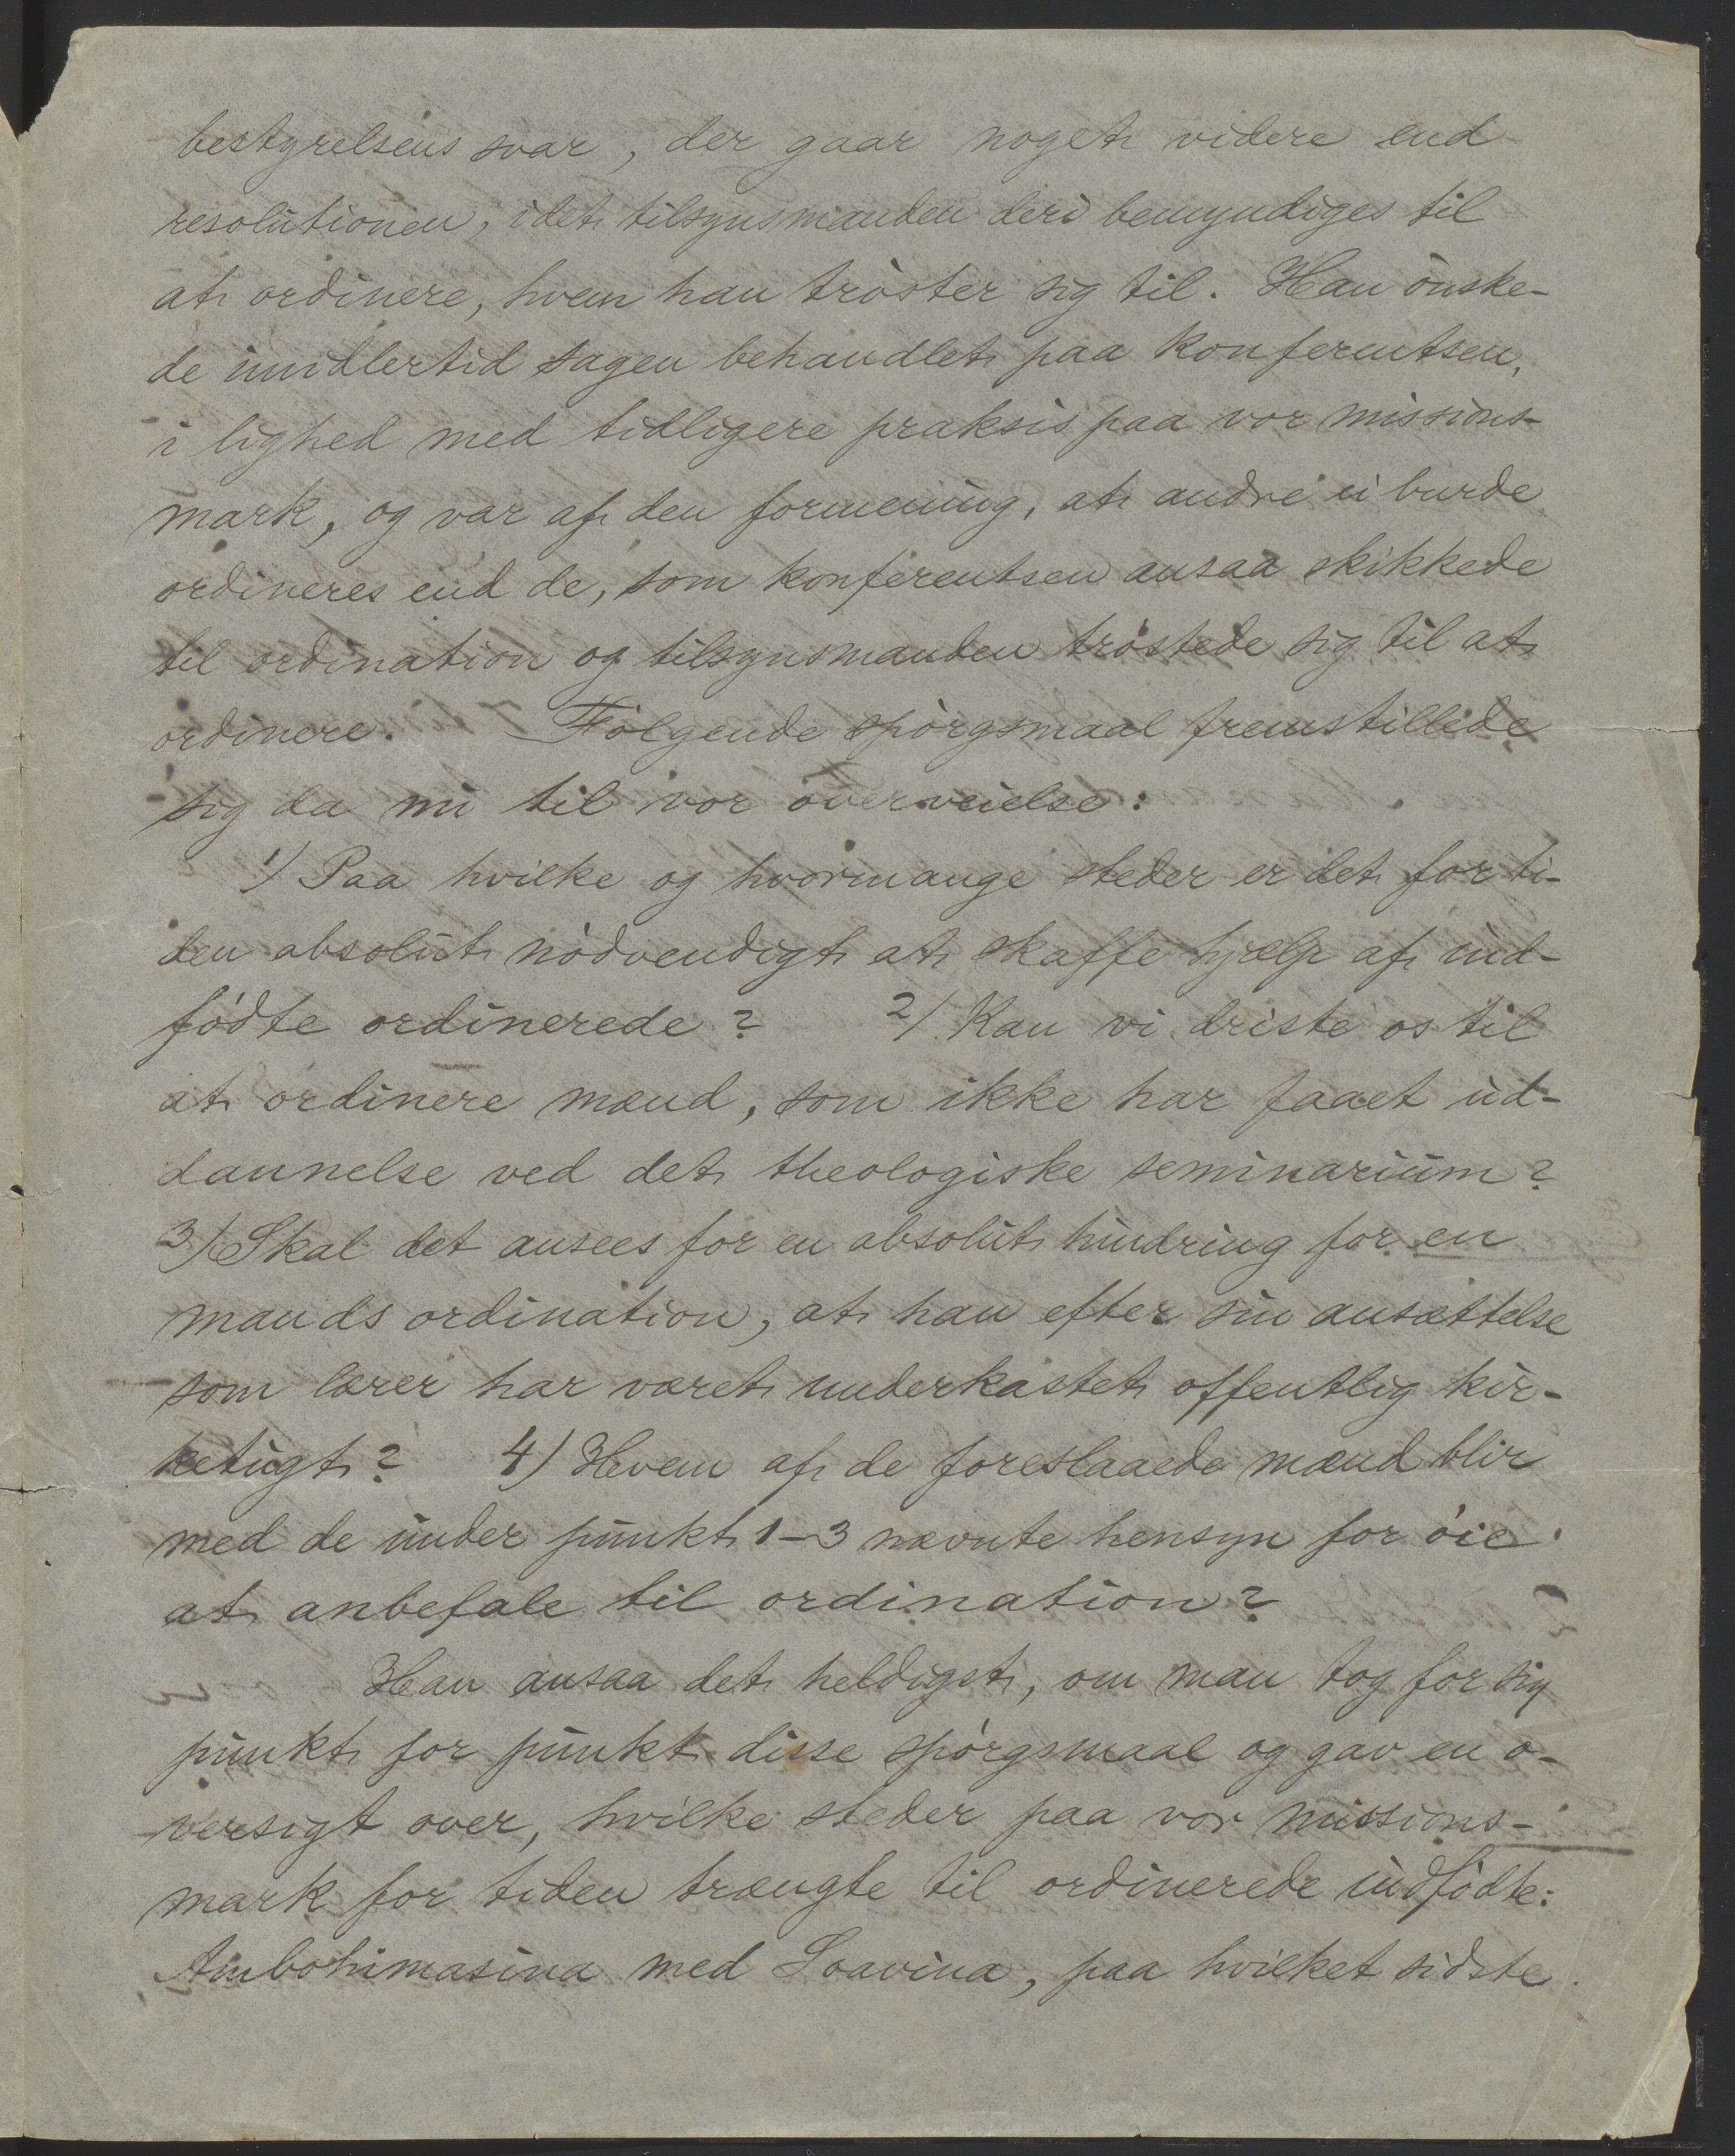 bestyrelsens svar, der gaar noget videre end
resolutionen, idet tilsynsmanden deri bemyndiges til
at ordinere, hvem han tröster sig til. Han önske-
de imidlertid sagen behandlet paa konferentsen,
i lighed med tidligere praksis paa vor missions-
mark, og var af den formening, at andre ei burde
ordineres end de, som konferentsen ansaa skikkede
til ordination og tilsynsmanden tröstede sig til at
ordinere. Fölgende spörgsmaal fremstillede
sig da nu til vor overveielse:
1) Paa hvilke og hvormange steder er det for ti-
den absolut nödvendigt at skaffe hjælp af ind-
födte ordinerede? 2) Kan vi driste os til
at ordinere mænd, som ikke har faaet ud-
dannelse ved det theologiske seminarium?
3) Skal det ansees for en absolut hindring for en
mands ordination, at han efter sin ansættelse
som lærer har været underkastet offentlig kir-
ketugt? 4) Hvem af de foreslaaede mænd blir
med de under punkt 1-3 nævnte hensyn for öie
at anbefale til ordination?
Han ansaa det heldigst, om man tog for sig
punkt for punkt disse spörgsmaal og gav en o-
versigt over, hvilke steder paa vor missions-
mark for tiden trængte til ordinerede indfödte:
Ambohimasina med Soavina, paa hvilket sidste